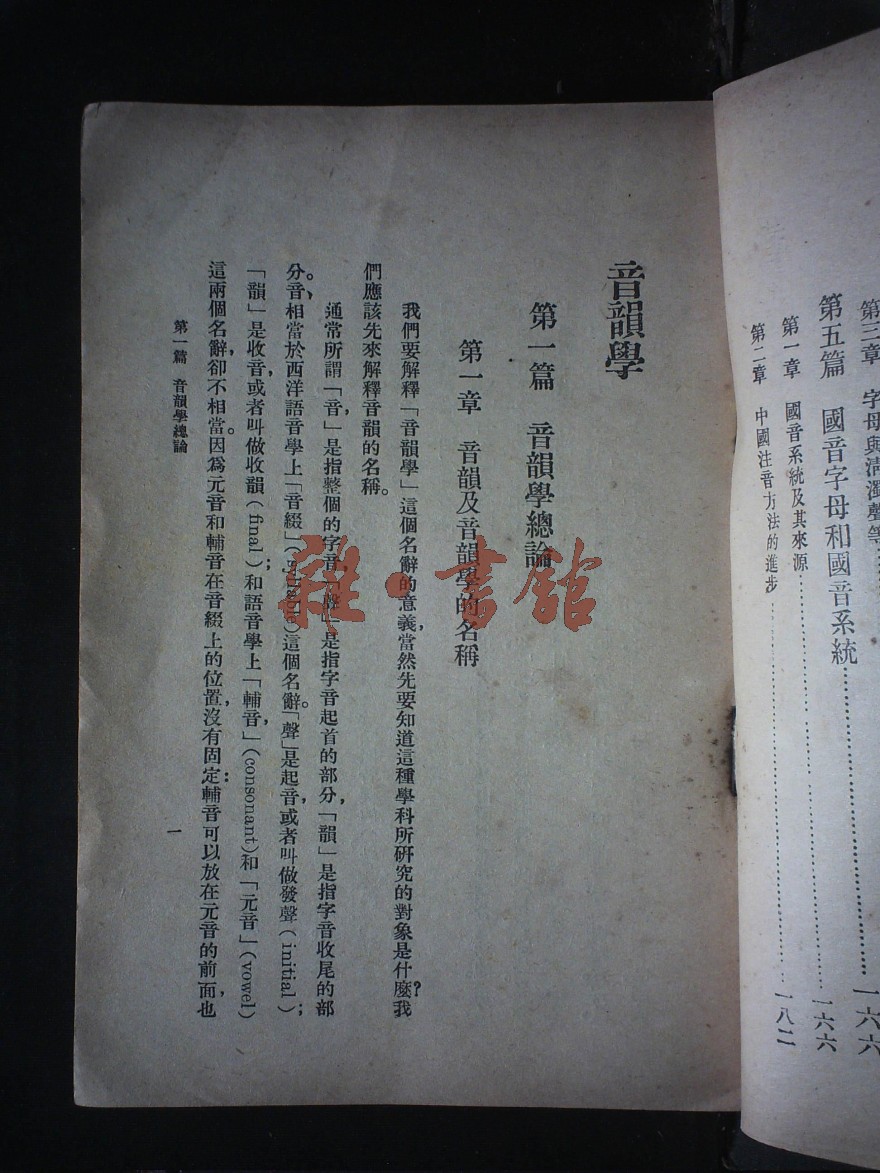 第三章 字母與清濁聲等
一六六
第五篇 國音字母和國音系統……………一六六
第一章 國音系統及其來源……………一六六
第二章 中國注音方法的進步……………一八二
音韻學
第一篇 音韻學總論
第一章 音韻及音韻學的名稱
我們要解釋「音韻學」這個名辭的意義,當然先要知道這種學科所研究的對象是什麼?我
們應該先來解釋音韻的名稱。
通常所謂「音,」是指整個的字音,「聲」是指字音起首的部分,「韻」是指字音收尾的部
分。音相當於西洋語音學上「音綴」(syllable)這個名辭。「聲」是起音,或者叫做發聲(initial);
「韻」是收音,或者叫做收韻(final);和語音學上「輔音,」(consonant)和「元音」(vowel)
這兩個名辭,卻不相當。因爲元音和輔音在音綴上的位置,沒有固定:輔音可以放在元音的前面,也
第一篇 音韻學總論
一
雜·書館